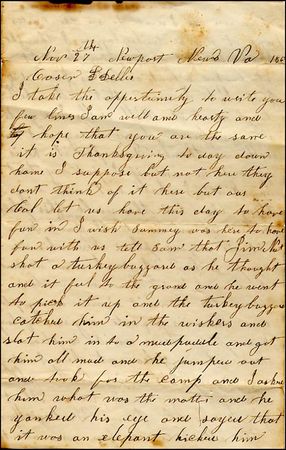 Nov 27th Newport News Va 186
Cosen Nellie
I take the oppertunity to write you
few lines I am well and hearty and
hope that you are the same
it is Thanksgiving to day down
home I suppose but not here they
dont think of it here but our
Col let us have this day to have
fun in I wish Sammey was here to have
fun with us tell Sam that Jim
shot a turkey buzzard as he thought
and it fel to the grond and he went
to pick it up and the turkey buzzard
catched him in the wiskers and
slat him in to a mudpuddle and got
him all mud and he jumped out
and took for the camp and I asked
him what was the matter and he
yanked his eye and sayed that
it was an elepant kicked him